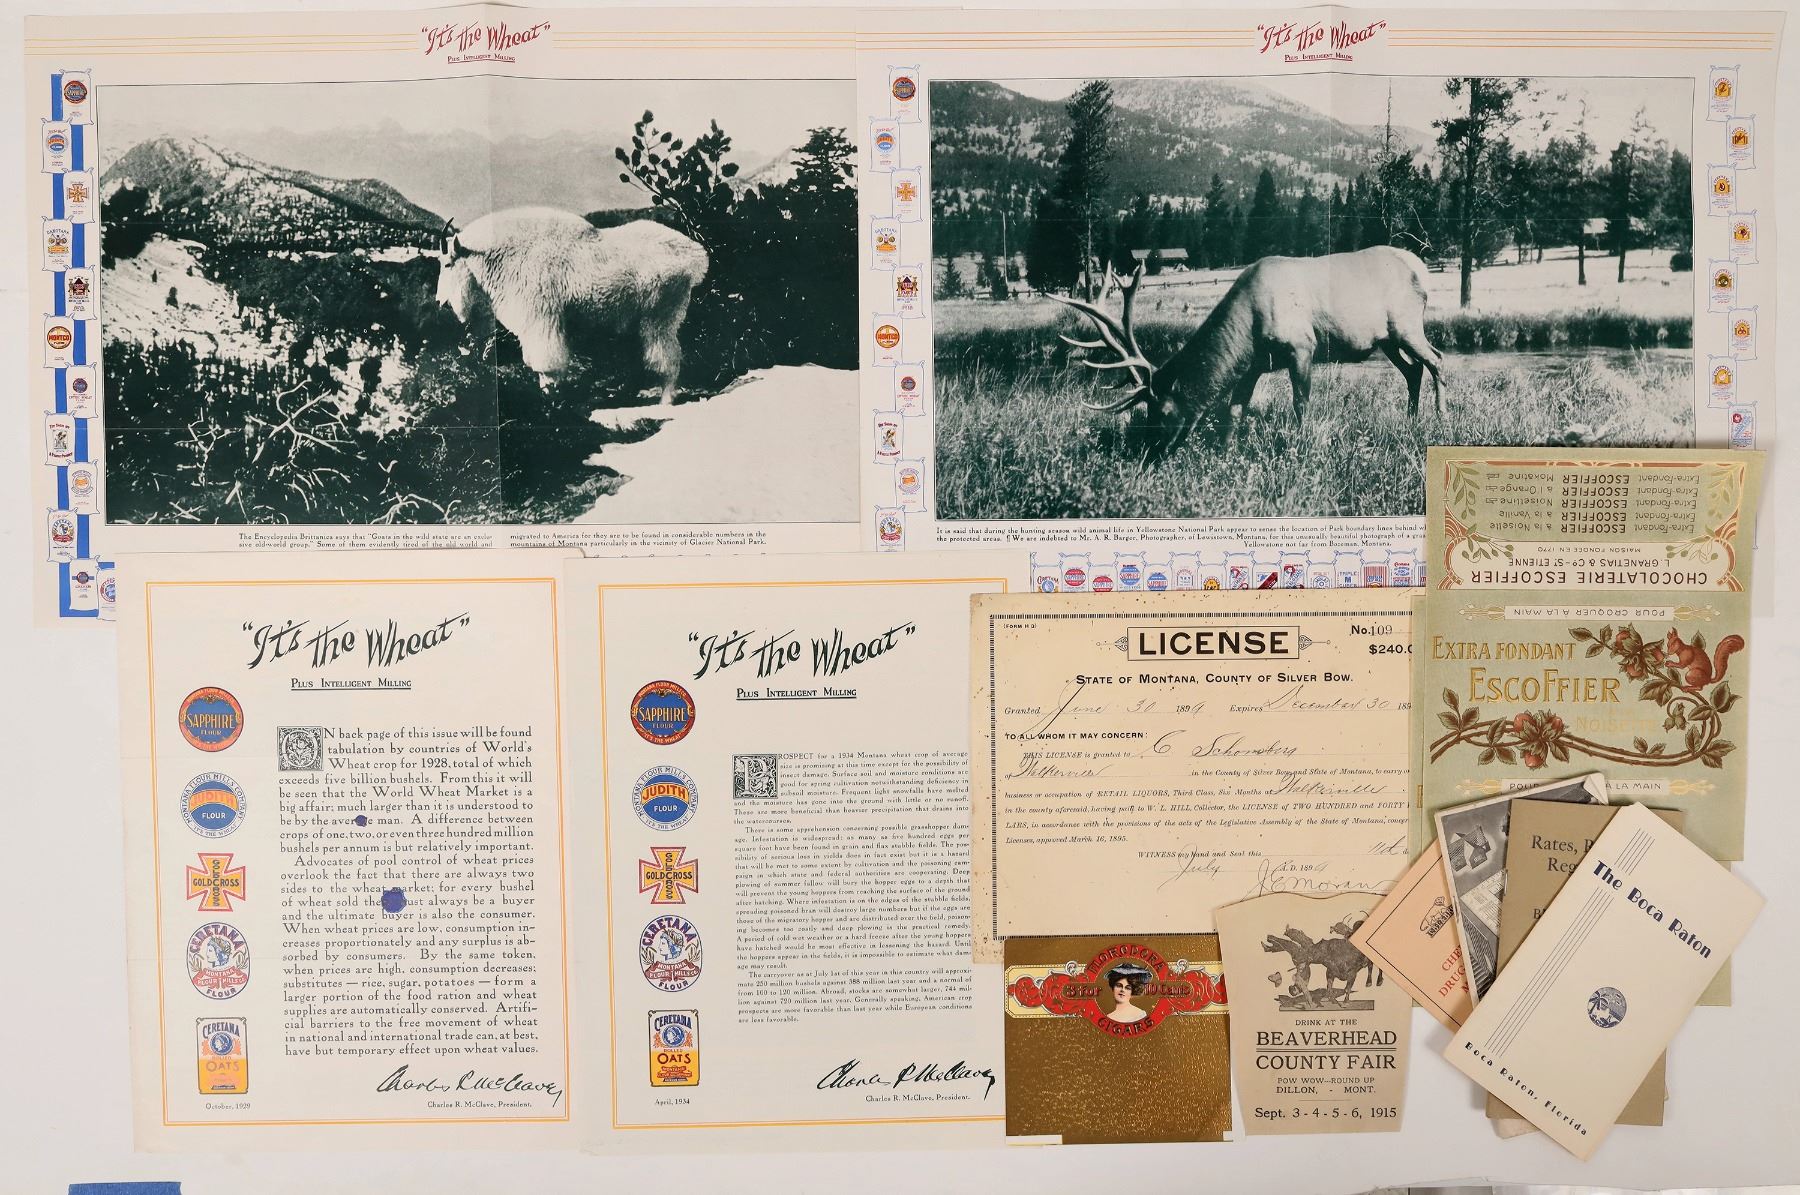 "It's the Wheat"
PLUS INTELLIGENT MILLING
The Encyclopedia Brittanica says that "Goats in the wild state are an exclu-
sive oldworld group." Some of them evidently tired of the old world and
migrated to America for they are to be found in considerable numbers in the
mountains of Montana particularly in the vicinity of Glacier National Park.
"It's the Wheat"
PLUS INTELLIGENT MILLING
It is said that during the hunting season wild animal life in Yellowstone National Park appear to sense the location of Park boundary lines behind
the protected areas. ¶ We are indebted to Mr. A. R. Barger, Photographer, of Lewistown, Montana, for this unusually beautiful photograph of a
Yellowstone not far from Bozeman, Montana.
"It's the Wheat"
PLUS INTELLIGENT MILLING
SAPPHIRE
FLOUR
MONTANA FLOUR MILLS COMPANY
JUDITH
FLOUR
"IT'S THE WHEAT"
GOLD CROSS
CERETANA
MONTANA
FLOUR MILLS CO.
FLOUR
CERETANA
ROLLED
OATS
October, 1929
IN back page of this issue will be found
tabulation by countries of World's
Wheat crop for 1928, total of which
exceeds five billion bushels. From this it will
be seen that the World Wheat Market is a
big affair; much larger than it is understood to
be by the average man. A difference between
crops of one, two, or even three hundred million
bushels per annum is but relatively important.
Advocates of pool control of wheat prices
overlook the fact that there are always two
sides to the wheat market; for every bushel
of wheat sold there must always be a buyer
and the ultimate buyer is also the consumer.
When wheat prices are low, consumption in-
creases proportionately and any surplus is ab-
sorbed by consumers. By the same token,
when prices are high, consumption decreases;
substitutes — rice, sugar, potatoes — form a
larger portion of the food ration and wheat
supplies are automatically conserved. Artifi-
cial barriers to the free movement of wheat
in national and international trade can, at best,
have but temporary effect upon wheat values.
Charles R. McClave
Charles R. McClave, President.
"It's the Wheat"
PLUS INTELLIGENT MILLING
SAPPHIRE
FLOUR
MONTANA FLOUR MILLS COMPANY
JUDITH
FLOUR
"IT'S THE WHEAT"
GOLD CROSS
CERETANA
MONTANA
FLOUR MILLS CO.
FLOUR
CERETANA
ROLLED
OATS
April, 1934
PROSPECT for a 1934 Montana wheat crop of average
size is promising at this time except for the possibility of
insect damage. Surface soil and moisture conditions are
good for spring cultivation notwithstanding deficiency in
subsoil moisture. Frequent light snowfalls have melted
and the moisture has gone into the ground with little or no runoff.
These are more beneficial than heavier precipitation that drains into
the watercourses.
There is some apprehension concerning possible grasshopper dam-
age. Infestation is widespread; as many as five hundred eggs per
square foot have been found in grain and flax stubble fields. The pos-
sibility of serious loss in yields does in fact exist but it is a hazard
that will be met to some extent by cultivation and the poisoning cam-
paign in which state and federal authorities are cooperating. Deep
plowing of summer fallow will bury the hopper eggs to a depth that
will prevent the young hoppers from reaching the surface of the ground
after hatching. Where infestation is on the edges of the stubble fields,
spreading poisoned bran will destroy large numbers but if the eggs are
those of the migratory hopper and are distributed over the field, poison-
ing becomes too costly and deep plowing is the practical remedy.
A period of cold wet weather or a hard freeze after the young hoppers
have hatched would be most effective in lessening the hazard. Until
the hoppers appear in the fields, it is impossible to estimate what dam-
age may result.
The carryover as at July 1st of this year in this country will approxi-
mate 250 million bushels against 388 million last year and a normal of
from 100 to 120 million. Abroad, stocks are somewhat larger, 744 mil-
lion against 720 million last year. Generally speaking, American crop
prospects are more favorable than last year while European conditions
are less favorable.
Charles R. McClave
Charles R. McClave, President.
(FORM H 3)
No. 109
LICENSE
$240.0
STATE OF MONTANA, COUNTY OF SILVER BOW.
Granted June 30 1899 Expires December 30 189
TO ALL WHOM IT MAY CONCERN:
THIS LICENSE is granted to C Schomberg
of Walkerville in the County of Silver Bow and State of Montana, to carry o
business or occupation of RETAIL LIQUORS, Third Class, Six Months at Walkerville
in the county aforesaid, having paid to W. L. HILL, Collector, the LICENSE of TWO HUNDRED and FORTY
LARS, in accordance with the provisions of the acts of the Legislative Assembly of the State of Montana, concer
Licenses, approved March 16, 1895.
WITNESS my hand and Seal this 11th d
July A.D. 1899
J E Moran
CHOCOLATERIE ESCOFFIER
L. GRANETIAS & Co. ST ETIENNE
MAISON FONDÉE EN 1770
Extra-Fondant ESCOFFIER à la Noisette
Extra-Fondant ESCOFFIER à la Vanille
Extra-Fondant ESCOFFIER Noisettine
Extra-Fondant ESCOFFIER à l'Orange
Extra-Fondant ESCOFFIER Mokatine
POUR CROQUER A LA MAIN
EXTRA FONDANT
ESCOFFIER
NOISETTE
POUR A LA MAIN
MOROPORA
5 for 10 Cents
CIGARS
DRINK AT THE
BEAVERHEAD
COUNTY FAIR
POW WOW---ROUND UP
DILLON, - MONT.
Sept. 3 - 4 - 5 - 6, 1915
Rates,
Reg
The Boca Raton
Boca Raton, Florida